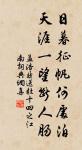 日暮征帆何處泊
天涯一望斷人腸
孟浩然送杜十四之江
南詞典網集